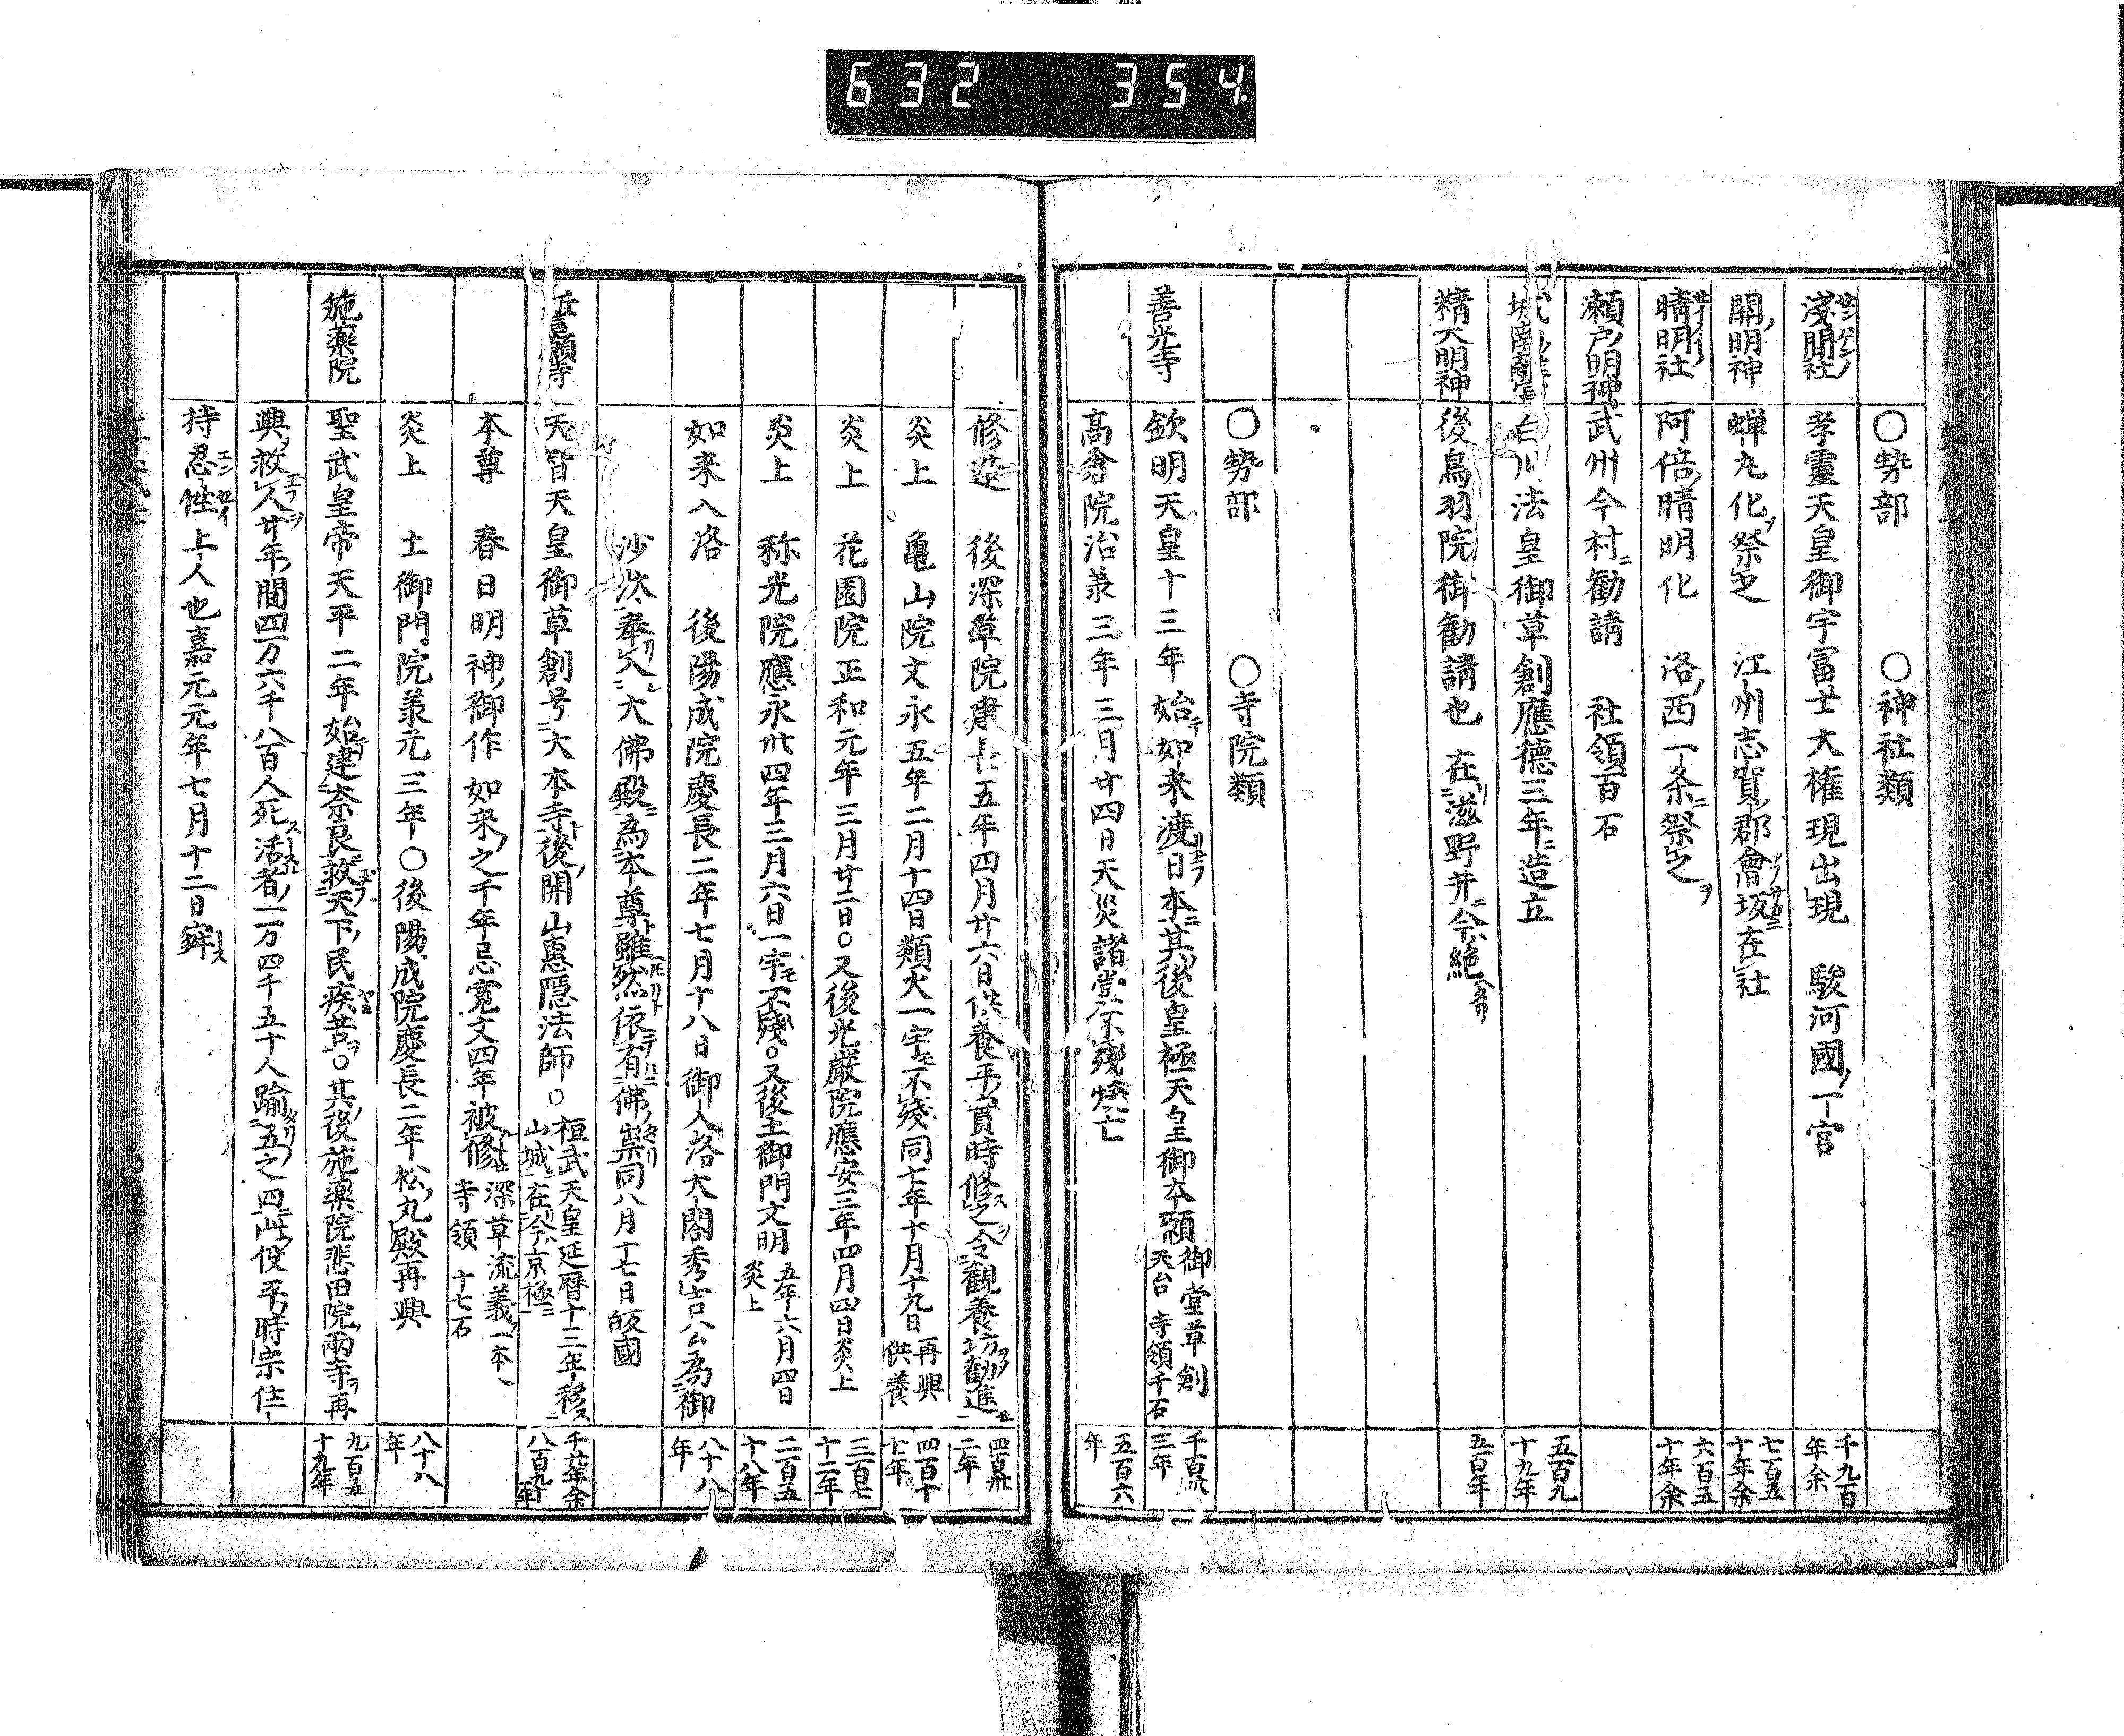 632 354
○勢部　○神社類
淺間社 孝靈天皇御宇冨士大権現出現 駿河國一宮 千九百年余
關明神 蝉丸化祭之 江州志賀郡會坂在社 七百五十年余
晴明社 阿倍晴明化 洛西一条祭之 六百五十年余
瀬戸明神 武州今村勧請 社領百石
白川法皇御草創應徳三年造立 五百九十九年
精大明神 後鳥羽院御勧請也 在滋野井今絶 五百年
○勢部　○寺院類
善光寺 欽明天皇十三年始如来渡日本其後皇極天皇御本願 御堂草創 天台 寺領千石 千百卅三年
高倉院治兼三年三月廿四日天災諸堂不殘燒亡 五百六年
修造 後深草院建長五年四月廿六日供養平實時修之令觀養坊勧進 四百卅二年
炎上 亀山院文永五年二月十四日類火一宇不殘同七年十月十九日 再興供養 四百十七年
炎上 花園院正和元年三月廿二日○又後光嚴院應安三年四月四日炎上 三百七十二年
炎上 称光院應永卅四年三月六日一宇不殘○又後土御門文明 五年六月四日炎上 二百五十八年
如来入洛 後陽成院慶長二年七月十八日御入洛大閤秀吉公為御 八十八年
沙汰奉入大佛殿為本尊雖然依有佛崇同八月十七日皈國
天智天皇御草創号大本寺後開山惠隠法師○ 桓武天皇延暦十三年移山城在今京極 千廿年余 八百九十年
本尊 春日明神御作如来之千年忌寛文四年被修 深草流義一本 寺領 十七石
炎上 土御門院兼元三年○後陽成院慶長二年松丸殿再興 八十八年
施藥院 聖武皇帝天平二年始建奈良救天下民疾苦○其後施藥院悲田院兩寺再 九百五十九年
興救人廿年間四万六千八百人死活者一万四千五十人踰五之四此役平時宗住
持忍性上人也嘉元元年七月十二日寂